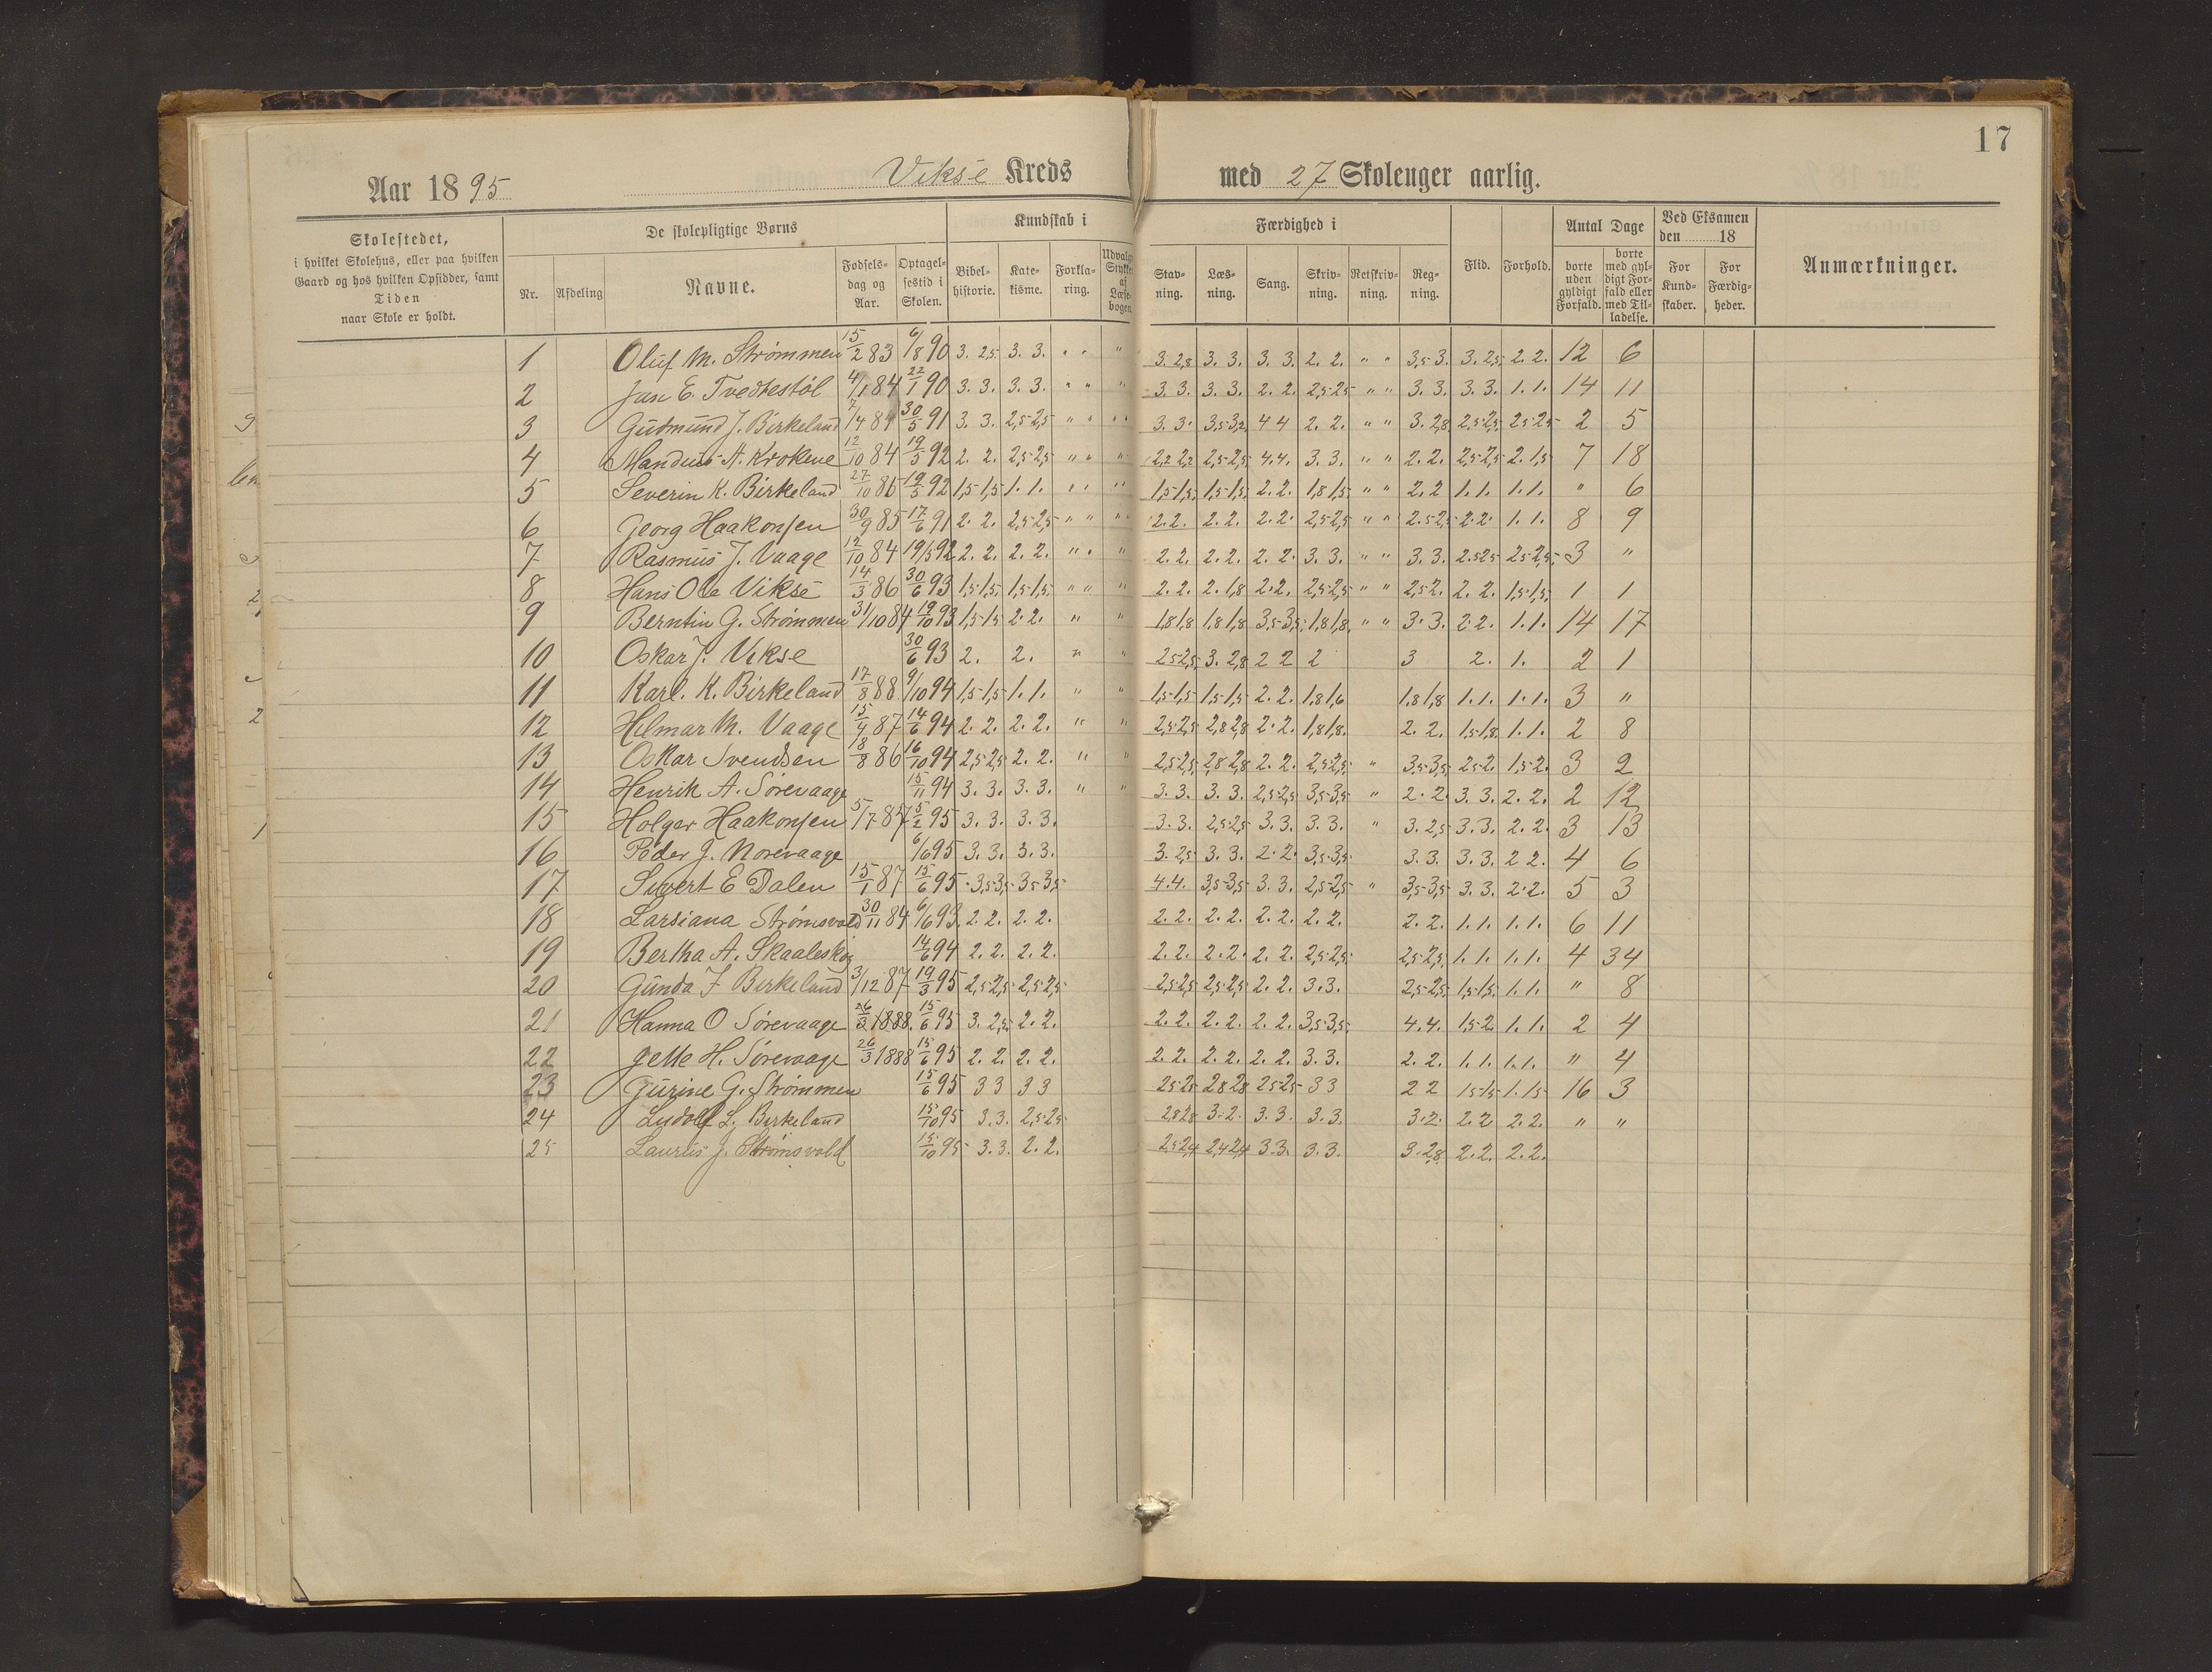 17
Aar 1895 Viksé Kreds med 27 Skoleuger aarlig.
Skolestedet, i hvilket Skolehus, eller paa hvilken Gaard og hos hvilken Opsidder, samt Tiden naar Skole er holdt.
De skolepligtige Børns
Nr. Afdeling Navne. Fødselsdag og Aar. Optagelsestid i Skolen.
Kundskab i
Bibelhistorie. Katekisme. Forklaring. Udvalgte Stykker af Læsebogen.
Færdighed i
Stavning. Læsning. Sang. Skrivning. Retskrivning. Regning.
Flid. Forhold.
Antal Dage
borte uden gyldigt Forfald. borte med gyldigt Forfald eller med Tilladelse.
Ved Eksamen den 18
For Kundskaber. For Færdigheder.
Anmærkninger.
1 Oluf M. Strømmen 15/2 83 6/8 90 3. 2,5 3. 3. " " " 3. 2,8 3. 3. 3. 3. 2. 2. " " 3,5 3. 3. 2,5 2. 2. 12 6
2 Jan E. Tvedtestöl 4/1 84 22/1 90 3. 3. 3. 3. " " " 3. 3. 3. 3. 2. 2. 2,5 2,5 " " 3. 3. 3. 3. 1. 1. 14 11
3 Gudmund J. Birkeland 7/4 84 30/5 91 3. 3. 2,5 2,5 " " " " 3. 3. 3,5 3,2 4 4 2. 2. " " 3. 2,8 2,5 2,5 2,5 2,5 2 5
4 Mandius A. Krokene 12/10 84 19/5 92 2. 2. 2,5 2,5 " " " 2,2 2,2 2,5 2,5 4. 4. 3. 3. " " 2. 2. 2,5 2,5 2. 1,5 7 18
5 Severin K. Birkeland 27/10 86 19/5 92 1,5 1,5 1. 1. " " " 1,5 1,5 1,5 1,5 2. 2. 1,8 1,5 " " 2. 2 1. 1. 1. 1. " 6
6 Georg Haakonsen 30/9 85 17/6 91 2. 2. 2,5 2,5 " " " 2. 2. 2. 2. 2. 2. 2,5 2,5 " " 2,5 2,5 2. 2. 1. 1. 8 9
7 Rasmus J. Vaage 12/10 84 19/5 92 2. 2. 2. 2. " " " 2. 2. 2. 2. 2. 2. 3. 3. " " 3. 3. 2,5 2,5 2,5 2,5 3 "
8 Hans Ole Viksé 14/3 86 30/6 93 1,5 1,5 1,5 1,5 " " " 2. 2. 2. 1,8 2. 2. 2,5 2,5 " " 2,5 2. 2. 2. 1,5 1,5 1 1
9 Berntin G. Strømmen 31/10 84 19/10 93 1,5 1,5 2. 2. " " 1,8 1,8 1,8 1,8 3,5 3,5 1,8 1,8 " " 3. 3. 2. 2. 1. 1. 14 17
10 Oskar J. Vikse 30/6 93 2. 2. " " 2,5 2,5 3. 2,8 2 2 2 3 2. 1. 2 1
11 Karl. K. Birkeland 17/8 88 9/10 94 1,5 1,5 1. 1. " " 1,5 1,5 1,5 1,5 2. 2. 1,8 1,6 1,8 1,8 1. 1. 1. 1. 3 "
12 Helmar M. Vaage 15/4 87 14/6 94 2. 2. 2. 2. " " 2,5 2,5 2,8 2,8 2. 2. 1,8 1,8 2. 2. 1,5 1,8 1. 1. 2 8
13 Oskar Svendsen 18/8 86 16/10 94 2,5 2,5 2. 2. " " 2,5 2,5 2,8 2,8 2. 2. 2,5 2,5 " 3,5 3,5 2,5 2. 1,5 2. 3 2
14 Henrik A. Sörevaage 15/11 94 3. 3. 3. 3. " " 3. 3. 3. 3. 2,5 2,5 3,5 3,5 " 2. 2. 3. 3. 2. 2. 2 12
15 Holger Haakonsen 5/7 87 5/2 95 3. 3. 3. 3. 3. 3. 2,5 2,5 3. 3. 3. 3. " 3. 2,5 3. 3. 2. 2. 3 13
16 Peder J. Norevaage 6/6 95 3. 3. 3. 3. 3. 2,5 3. 3. 2. 2. 3,5 3,5 3. 3. 3. 3. 2 2. 4 6
17 Sivert E Dalen 15/1 87 15/6 95 3,5 3,5 3,5 3,5 4. 4. 3,5 3,5 3. 3. 2,5 2,5 " 3,5 3,5 3. 3. 2. 2. 5 3
18 Larsiana Strømsvold 30/11 84 6/6 93 2. 2. 2. 2. 2. 2. 2. 2. 2. 2. 2. 2. 2. 2. 1. 1. 1. 1. 6 11
19 Bertha A. Skaaleskog 14/6 94 2. 2. 2. 2. 2. 2. 2. 2. 2. 2. 2,5 2,5 2,5 2,5 1. 1. 1. 1. 4 34
20 Gunda J Birkeland 3/12 87 19/3 95 2,5 2,5 2,5 2,5 2,5 2,5 2,5 2,5 2. 2. 3. 3. 2,5 2,5 1,5 1,5 1. 1. " 8
21 Hanna O Sörevaage 26/3 1888 15/6 95 3. 2,5 2. 2. 2. 2. 2. 2. 2. 2. 3,5 3,5 4. 4. 1,5 2. 1. 1. 2 4
22 Jette H. Sörevaage 26/3 1888 15/6 95 2. 2. 2. 2. 2. 2. 2. 2. 2. 2. 3. 3. 2. 2. 1. 1. 1. 1. " 4
23 Gurine G. Strömmen 15/6 95 3 3 3 3 2,5 2,5 2,8 2,8 2,5 2,5 3 3 2 2 1,5 1,5 1. 1,5 16 3
24 Ludolf L. Birkeland 15/10 95 3. 3. 2,5 2,5 2,8 2,8 3. 2. 3. 3. 3. 3. 3. 2. 2. 2 2. 2. " "
25 Laurits J. Strömsvold 15/10 95 3. 3. 2. 2. 2,5 2,4 2,4 2,4 3. 3. 3. 3. 3. 2,8 2. 2. 2. 2.